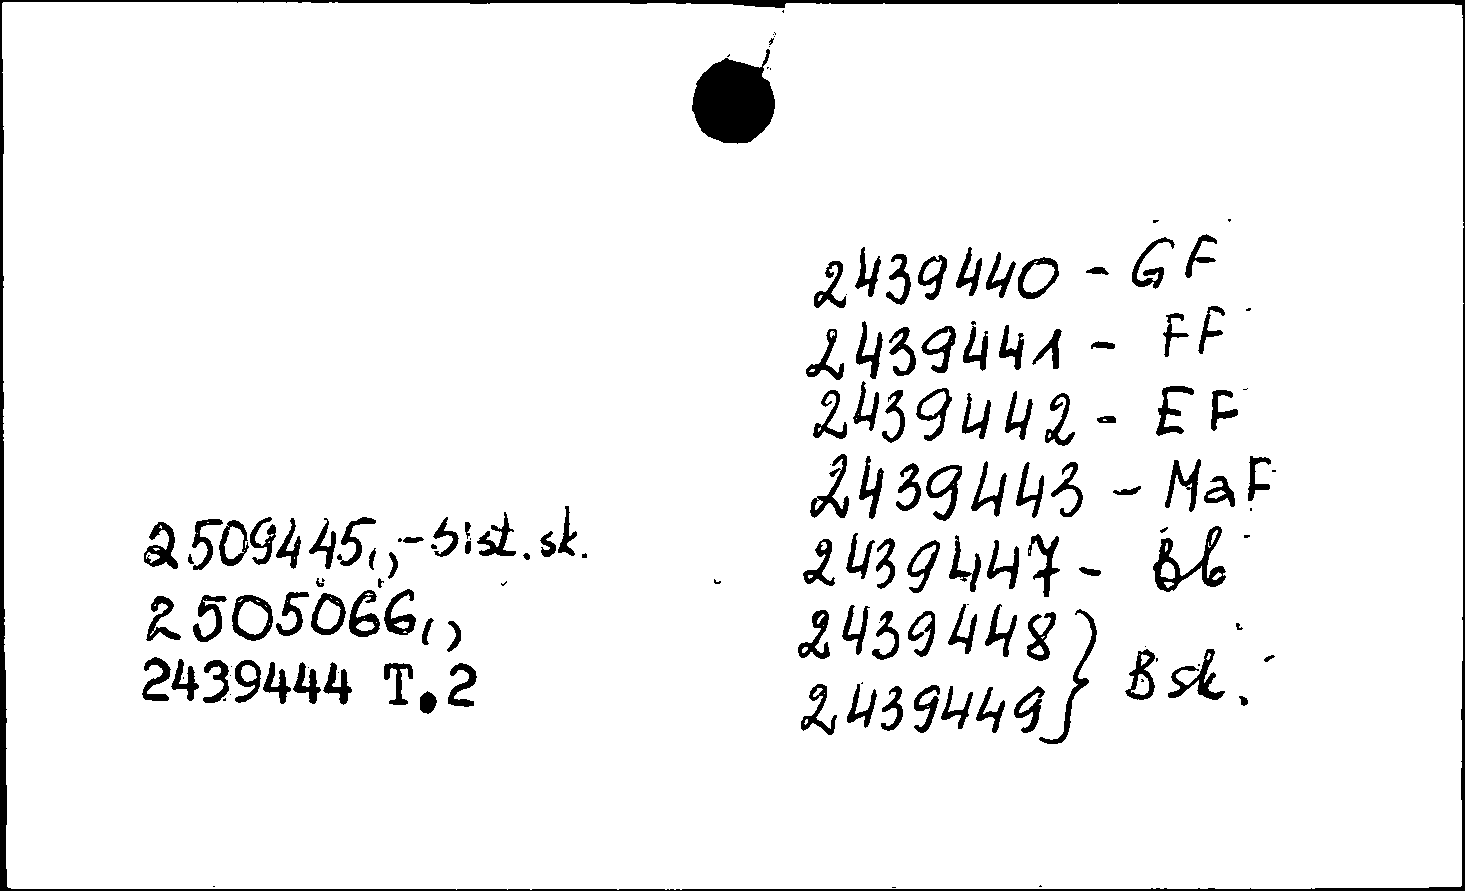 2439440 - GF
2439441 - FF
2439442 - EF
2439443 - MaF
2439447 - Bb
2439448 } Bsk.
2439449
2509445,,- sist. sk.
2505066,,
2439444 T.2